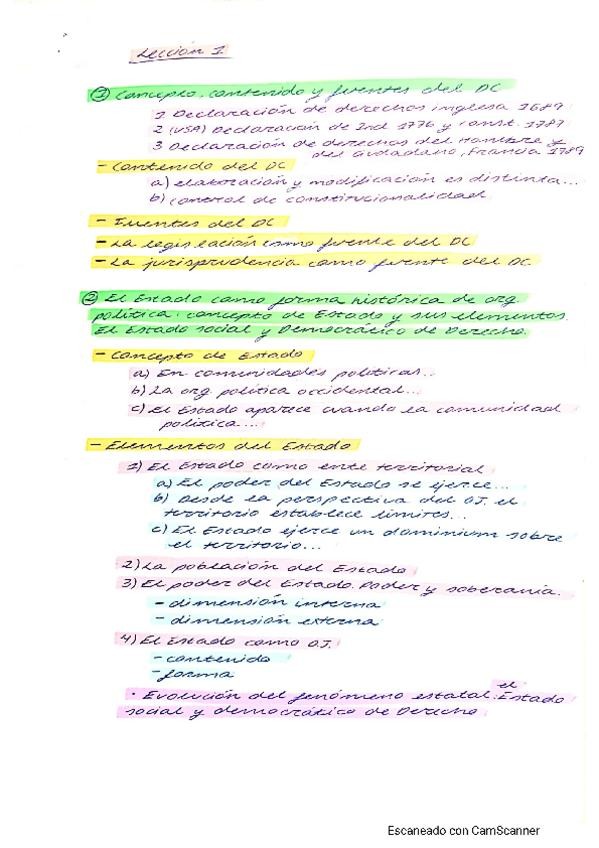 Lección 1
① Concepto, contenido y fuentes del DC
1 Declaración de derechos inglesa 1689
2 (USA) Declaración de Ind 1776 y const. 1787
3 Declaración de derechos del Hombre y
del ciudadano, Francia 1789
- Contenido del DC
a) elaboración y modificación es distinta...
b) control de constitucionalidad
- Fuentes del DC
- La legislación como fuente del DC
- La jurisprudencia como fuente del DC
② El Estado como forma histórica de org.
política: concepto de Estado y sus elementos.
El Estado social y Democrático de Derecho.
- Concepto de Estado
a) En comunidades políticas...
b) La org. política occidental...
c) El Estado aparece cuando la comunidad
política...
- Elementos del Estado
1) El Estado como ente territorial
a) El poder del Estado se ejerce...
b) Desde la perspectiva del OJ. el
territorio establece límites...
c) El Estado ejerce un dominium sobre
el territorio...
2) La población del Estado
3) El poder del Estado. Poder y soberanía.
- dimensión interna
- dimensión externa
4) El Estado como OJ.
- contenido
- forma
· Evolución del fenómeno estatal: el Estado
social y democrático de Derecho
Escaneado con CamScanner